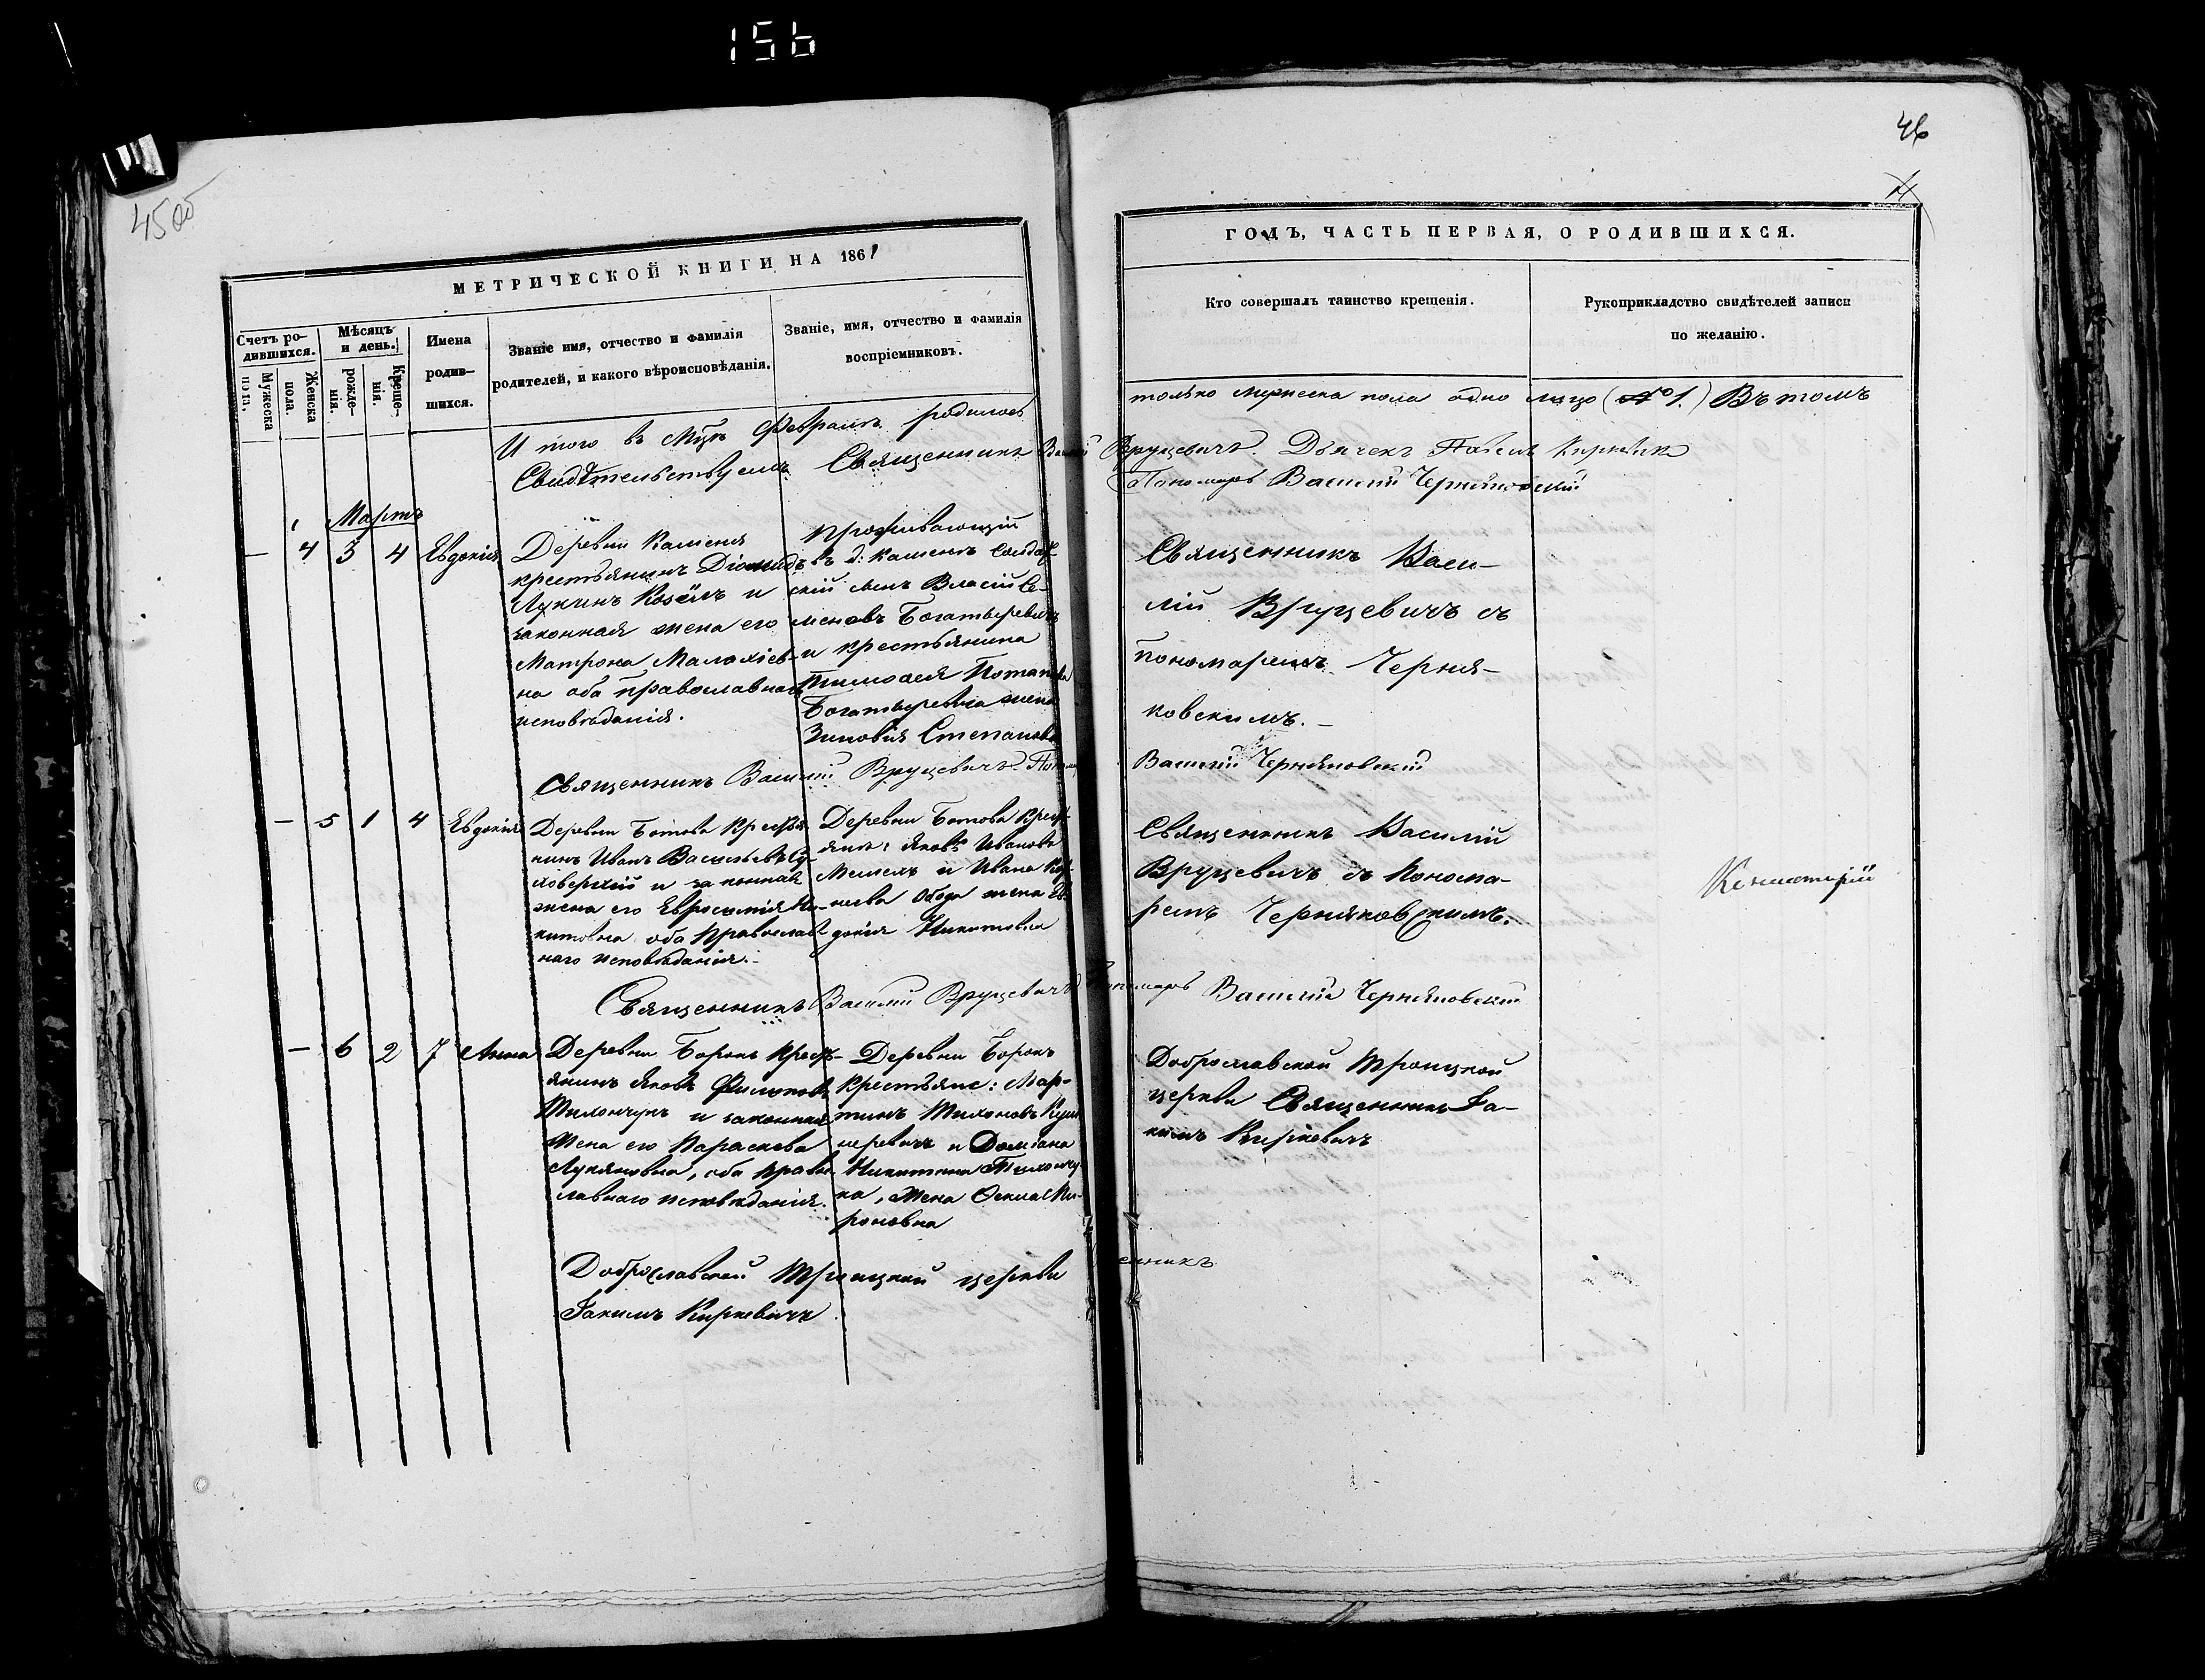 156
45 об
46
14
МЕТРИЧЕСКОЙ КНИГИ НА 1861
ГОДЪ, ЧАСТЬ ПЕРВАЯ, О РОДИВШИХСЯ.
Счетъ ро-
дившихся.
Мужеска
пола.
Женска
пола.
Мѣсяцъ
и день.
рожде-
нія.
Креще-
нія.
Имена
родив-
шихся.
Званіе имя, отчество и фамилія
родителей, и какого вѣроисповѣданія.
Званіе, имя, отчество и фамилія
воспріемниковъ.
Кто совершалъ таинство крещенія.
Рукоприкладство свидѣтелей записи
по желанію.
И того въ Мцѣ Февралѣ родилось только мужеска пола одно лицо (№ 1.) Въ томъ
Свидѣтельствуемъ Священникъ Василій Вруцевичъ. Дьячекъ Павелъ
Пономарь Василій Черняковскій
Мартъ
— 4 3 4 Евдокія
Деревни Каменя
крестьянинъ Діомидъ
Лукинъ Козёлъ и
законная жена его
Матрона Малахіев-
на оба православнаго
исповѣданія.
Проживающій
въ д: Камень Солдат-
скій сынъ Власій Се-
меновъ Богатыревичъ
и крестьянина
Тимофея Потапова
жена
Зиновія Степанова
Священникъ Васи-
лій Вруцевичъ съ
пономаремъ Черня-
ковскимъ.
Священникъ Василій Вруцевичъ Пономарь Василій Черняковскій
— 5 1 4 Евдокія
Деревни Ботова Крестья-
нинъ Иванъ Васильевъ Су-
ховерхій и законная
жена его Евросинія Ни-
китовна оба православ-
наго исповѣданія.
Деревни Ботова Крест-
яне: Яковъ Ивановъ
и Ивана
жена Ев-
докія Никитовна
Священникъ Василій
Вруцевичъ съ Понома-
ремъ Черняковскимъ.
Священникъ Василій Вруцевичъ Пономарь Василій Черняковскій
— 6 2 7 Анна
Деревни Борокъ Крест-
янинъ Яковъ Филиповъ
Тихончукъ и законная
жена его Параскева
Лукяновна, оба право-
славнаго исповѣданія.
Деревни Борокъ
крестьяне: Мар-
тинъ Тихоновъ
и Доміана
Никитина Тихончу-
ка, жена Ми-
роновна
Доброславской Троицкой
церкви Священникъ Іа-
кимъ Киркевичъ
Доброславской Троицкой церкви Священникъ
Іакимъ Киркевичъ